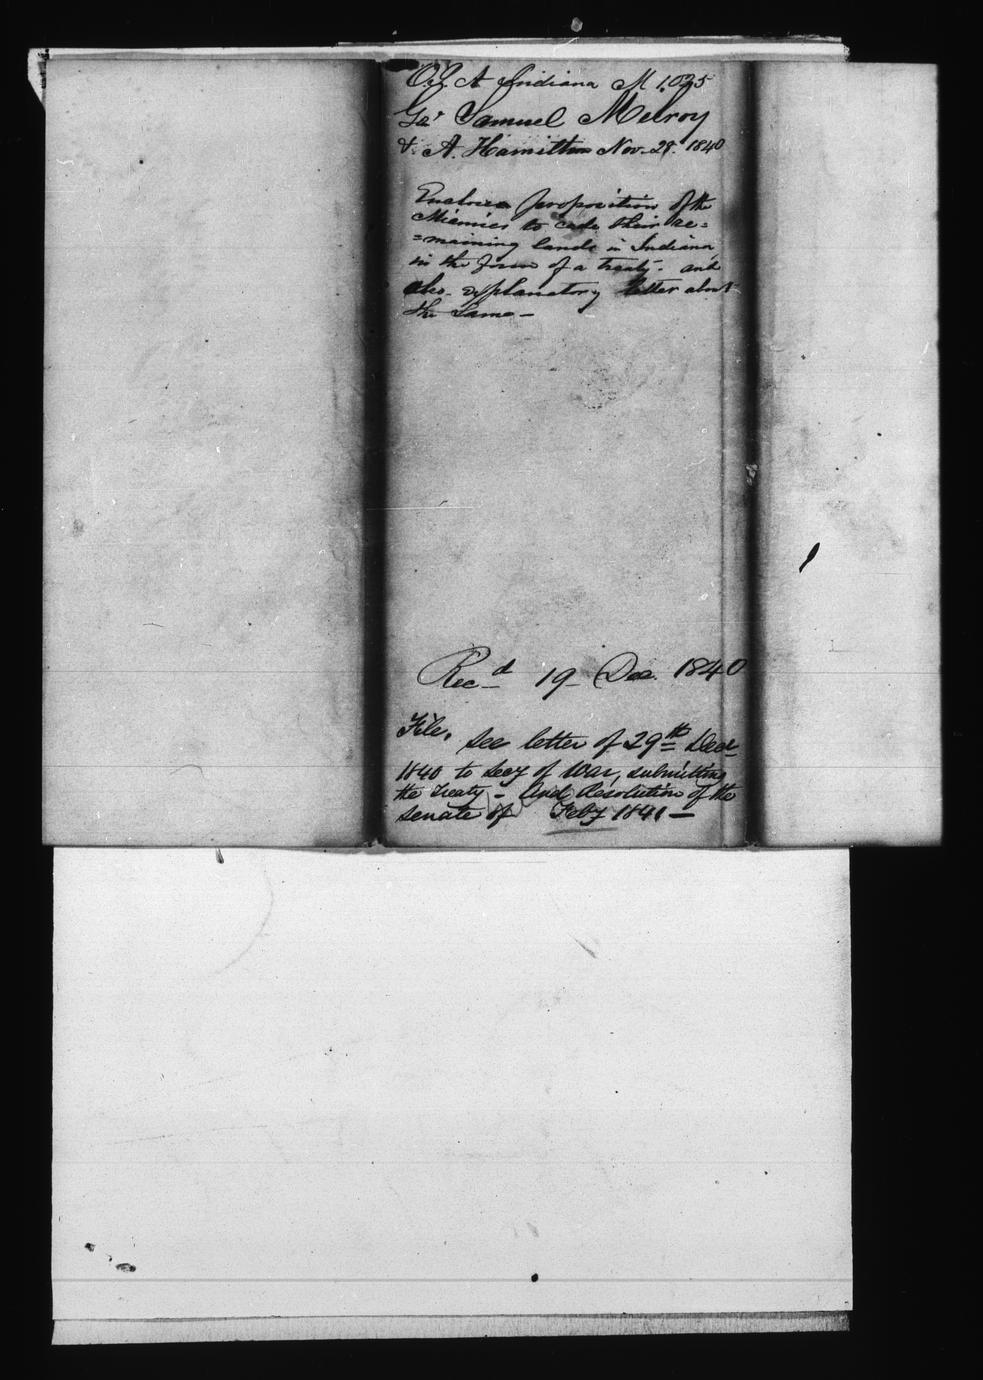 Indiana M 1.035
Samuel Melroy
& A. Hamilton Nov. 28. 1840
Encloses proposition of the
Miamies to cede their re=
=maining lands in Indiana
in the form of a treaty. and
also explanatory letter about
the same—
Recd 19 Dec. 1840
File, see letter of 29th Decr
1840 to Secy of War, submitting
the treaty - And Resolution of the
Senate of Feby 1841—